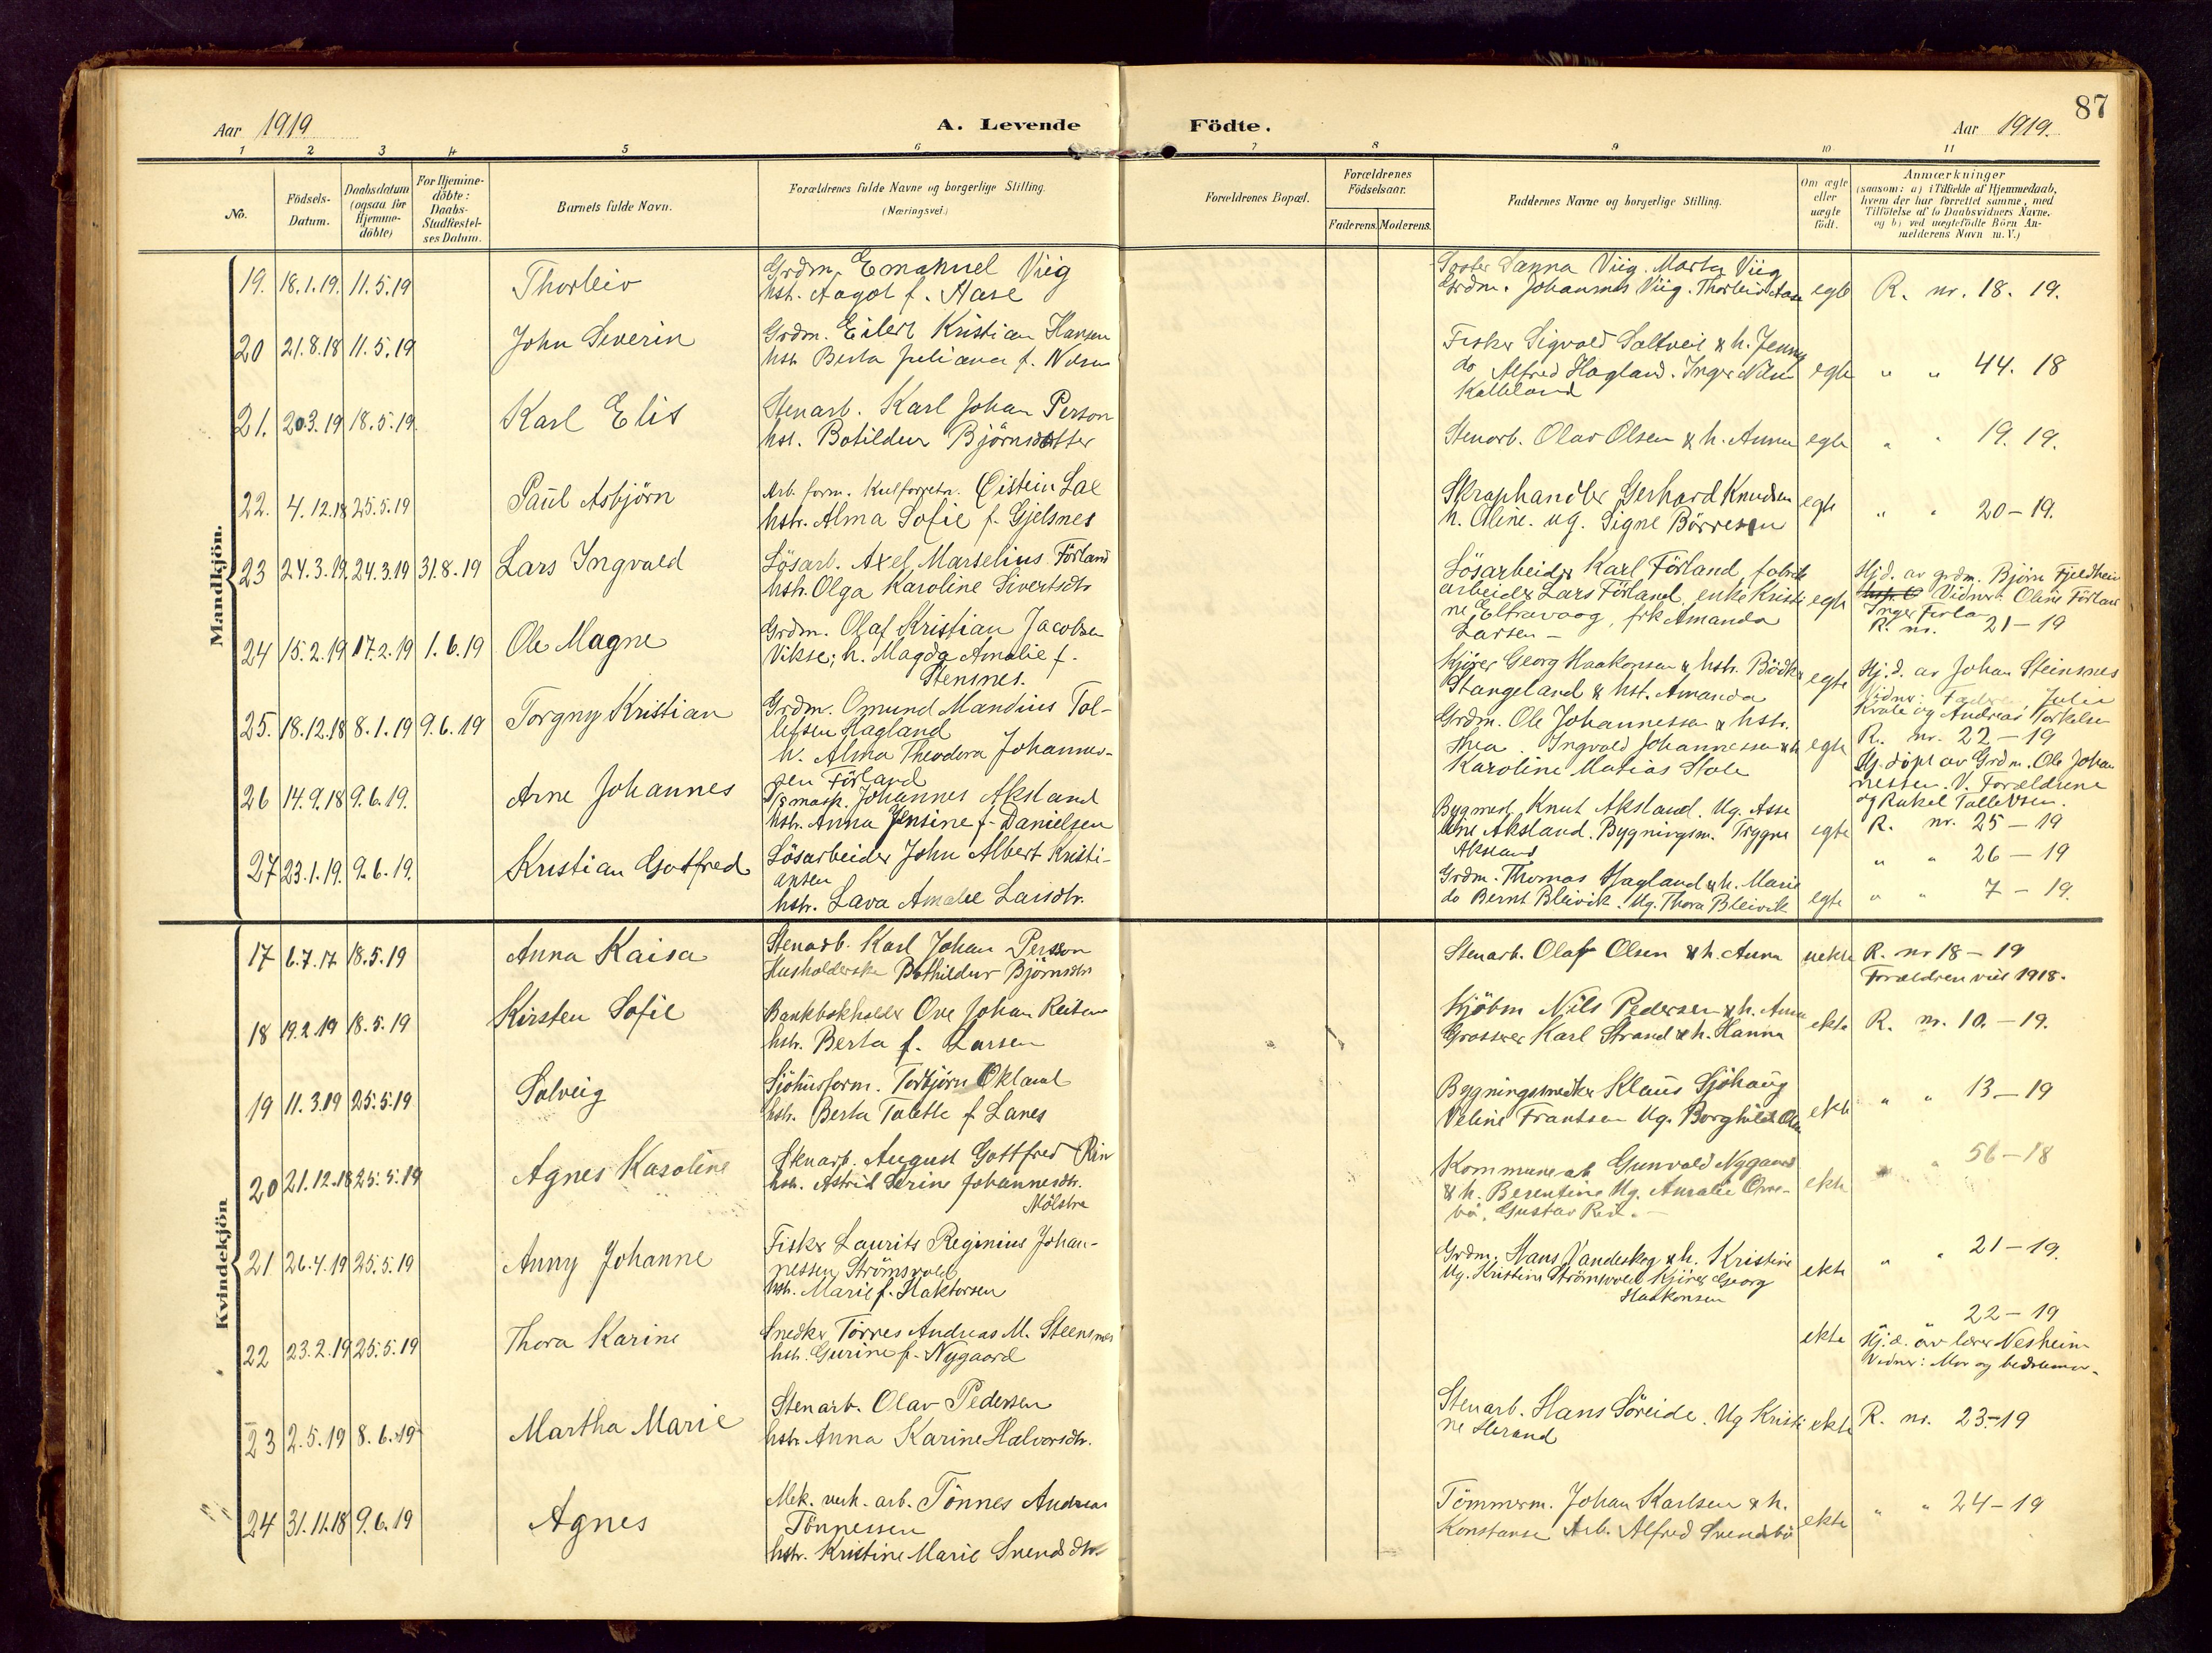 87
Aar 1919
A. Levende Födte.
Aar 1919.
1 2 3 4 5 6 7 8 9 10 11
No.
Födsels-Datum.
Daabsdatum (ogsaa for Hjemmedöbte)
For Hjemmedöbte: Daabs-Stadfæstelses Datum.
Barnets fulde Navn.
Forældrenes fulde Navne og borgerlige Stilling.
(Næringsvei.)
Forældrenes Bopæl.
Forældrenes Födselsaar.
Faderens. Moderens.
Faddernes Navne og borgerlige Stilling.
Om ægte eller uægte födt.
Anmærkninger
(saasom: a) i Tilfælde af Hjemmedaab,
hvem der har forrettet samme, med
Tilföielse af to Daabsvidners Navne.
og b) ved uægtefödte Börn An-
melderens Navn m. V.)
Mandkjön.
19. 18.1.19. 11.5.19 Thorleiv
Grdm. Emanuel Viig
hst. Aagot f. Aase
Sanna Viig. Marta Viig
Grdm. Johannes Viig. Thorleiv Aase
egte R. nr. 18. 19.
20 21.8.18 11.5.19 John Severin
Grdm. Eilert Kristian Hansen
hst. Berta Juliana f. Nilsen
Fisker Sigvald Saltveit & h. Jenny
do Alfred Hagland. Inger Nilsen
Kalleland
egte " " 44. 18
21. 20.3.19 18.5.19 Karl Elis
Stenarb. Karl Johan Person
hst. Botildur Björnsdotter
Stenarb. Olav Olsen & h. Anna
egte " " 19. 19.
22. 4.12.18 25.5.19 Paul Asbjörn
Arb. form. Öistein Lae
hstr. Alma Sofie f. Gjelsnes
Skraphandler Gerhard Knudsen
h. Oline. ug. Signe Börresen
egte " " 20-19.
23 24.3.19. 24.3.19 31.8.19 Lars Ingvald
Lösarb. Axel Marselius Förland
hstr. Olga Karoline Sivertsdtr
Lösarbeider Karl Förland, fabrik
arbeider Lars Förland, enke Kristi
ne Eltravaag, frk Amanda
Larsen -
egte
Hjd. av grdm. Björn Fjeldheim
Vidner: Oline Förland
Inger Förland
R. nr. 21-19
24 15.2.19 17.2.19 1.6.19 Ole Magne
Grdm. Olaf Kristian Jacobsen
Vikse; h. Magda Amalie f.
Stensnes.
Kjörer Georg Haakonsen & hstr. Bödker
Stangeland & hst. Amanda
egte
Hj.d. av Johan Steinsnes
Vidner: Faderen, Julie
Kvale og Andreas Torkelsen
R. nr. 22-19
25. 18.12.18 8.1.19 9.6.19 Torgny Kristian
Grdm. Omund Mandius Tol-
lefsen Hagland
h. Alma Theodora Johannes-
sen Förland
Grdm. Ole Johannessen & hstr.
Thea. Ingvald Johannessen & h
Karoline Matias Hole
egte
Hj. döpt av Grdm. Ole Johan
nessen. V. Forældrene
og Rakel Tollefsen.
R. nr. 25-19
26 14.9.18 9.6.19. Arne Johannes
mask. Johannes Aksland
hstr. Anna Jensine f. Danielsen
Bygmest. Knut Aksland. Ug. Asse
line Aksland. Bygningsm. Trygve
Aksland
egte " " 26-19
27 23.1.19. 9.6.19. Kristian Gotfred
Lösarbeider John Albert Kristi-
ansen
hstr. Lava Amalie Larsdtr.
Grdm. Thomas Hagland & h. Marie
do Bernt Bleivik. Ug. Thora Bleivik
egte " " 7-19.
Kvindekjön
17 6.7.17 18.5.19 Anna Kaisa
Stenarb. Karl Johan Person
Husholderske Bothildur Björnsdtr
Stenarb. Olaf Olsen & h. Anna
uekte R. nr 18-19
Forældren viet 1918.
18 19.2.19 18.5.19 Kirsten Sofie
Bankbokholder Ove Johan Reiten
hstr. Berta f. Larsen
Kjöbm Nils Pedersen & h. Anna
Grosserer Karl Strand & h. Hanna
ekte R. nr. 10.-19.
19 11.3.19 25.5.19 Solveig
Sjöhusform. Torbjörn Økland
hstr. Berta Tolette f. Lanes
Bygningssnedker Klaus Sjöhaug
Veline Frantsen Ug. Borghild
ekte " " 13-19
20 21.12.18 25.5.19 Agnes Karoline
Stenarb. August Gottfred Rin
hstr. Astrid Serine Johannesdtr.
Mölstre
Kommunearb Gunvald Nygaard
& h. Berentine Ug. Amalie
bö. Gustav
ekte " 56-18
21 26.4.19 25.5.19 Anny Johanne
Fisker Laurits Reginius Johan-
nessen Strömsvold
hstr. Marie f. Haktorsen
Grdm. Hans Vandeskog & h. Kristine
Ug. Kristine Strömsvold Kjörer Georg
Haakonsen
ekte " " 21-19.
22 23.2.19 25.5.19 Thora Karine
Snedker Torres Andreas M. Steensnes
hstr. Gurine f. Nygaard
ekte 22-19
Hj.d. av lærer Nesheim
Vidner: Mor og bedstemor.
23 2.5.19 8.6.19 Martha Marie
Stenarb. Olav Pedersen
hstr. Anna Karine Halvorsdtr.
Stenarb. Hans Söreide. Ug Kristi
ne Herand
ekte R. nr. 23-19
24 31.11.18 9.6.19 Agnes
Mek. verk. arb. Tönnes Andreas
Tönnessen
hstr. Kristine Marie Svendsdtr
Tömmerm. Johan Karlsen & h.
Konstanse Arb. Alfred Svendsbö
ekte " " 24-19